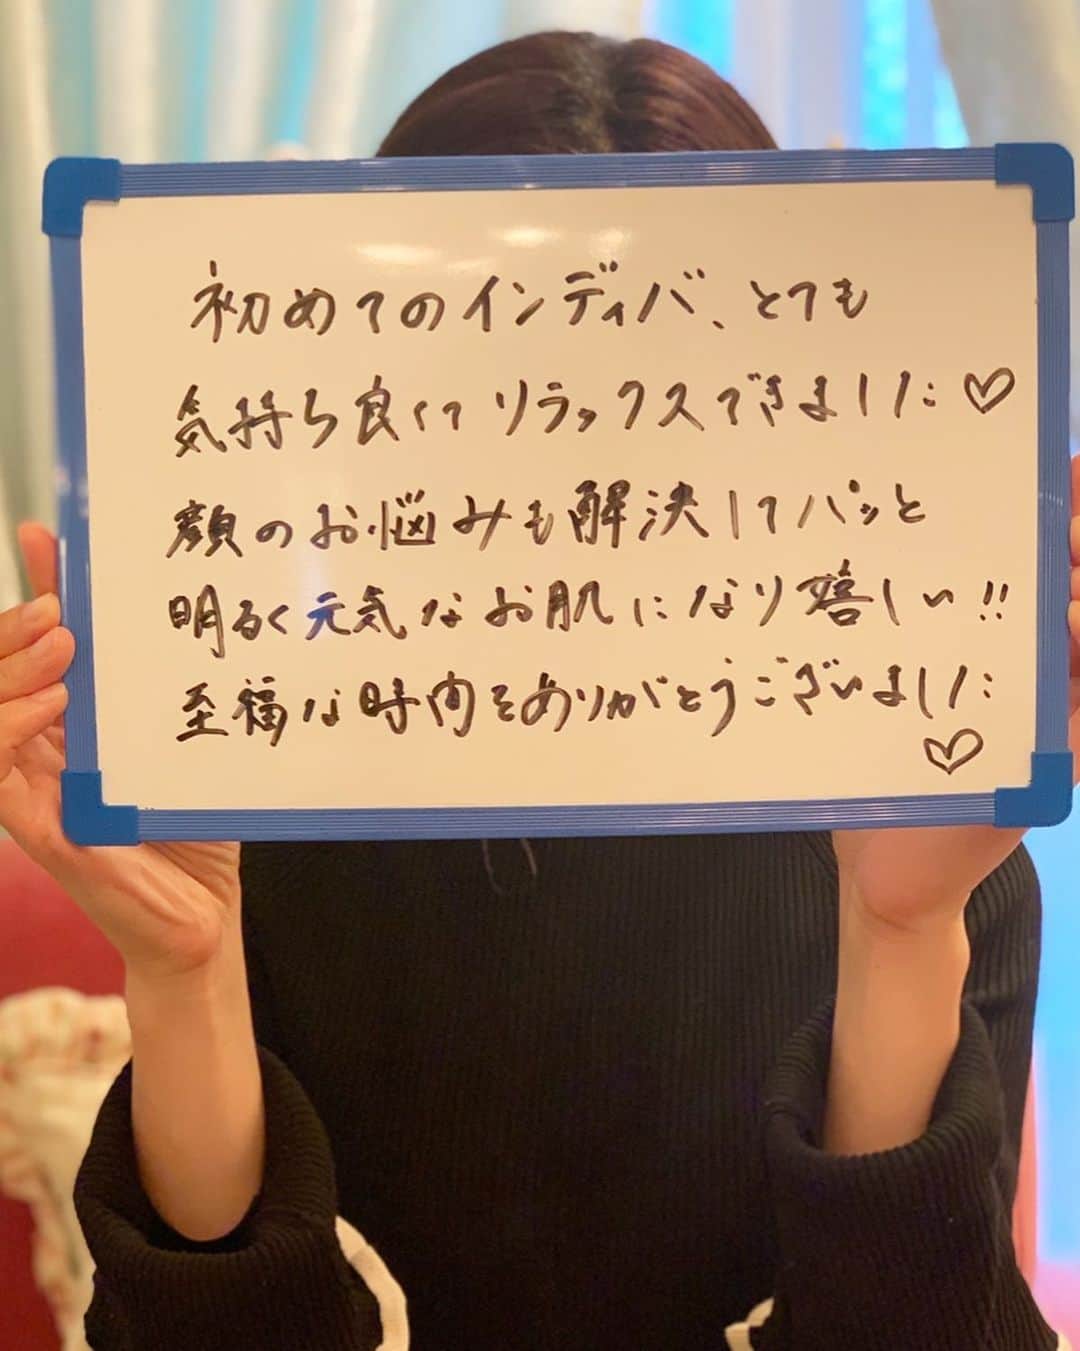 初めてのインディバ、とても
気持ち良くてリラックスできました♡
顔のお悩みも解決してパッと
明るく元気なお肌になり嬉しい!!
至福な時間をありがとうございました
♡